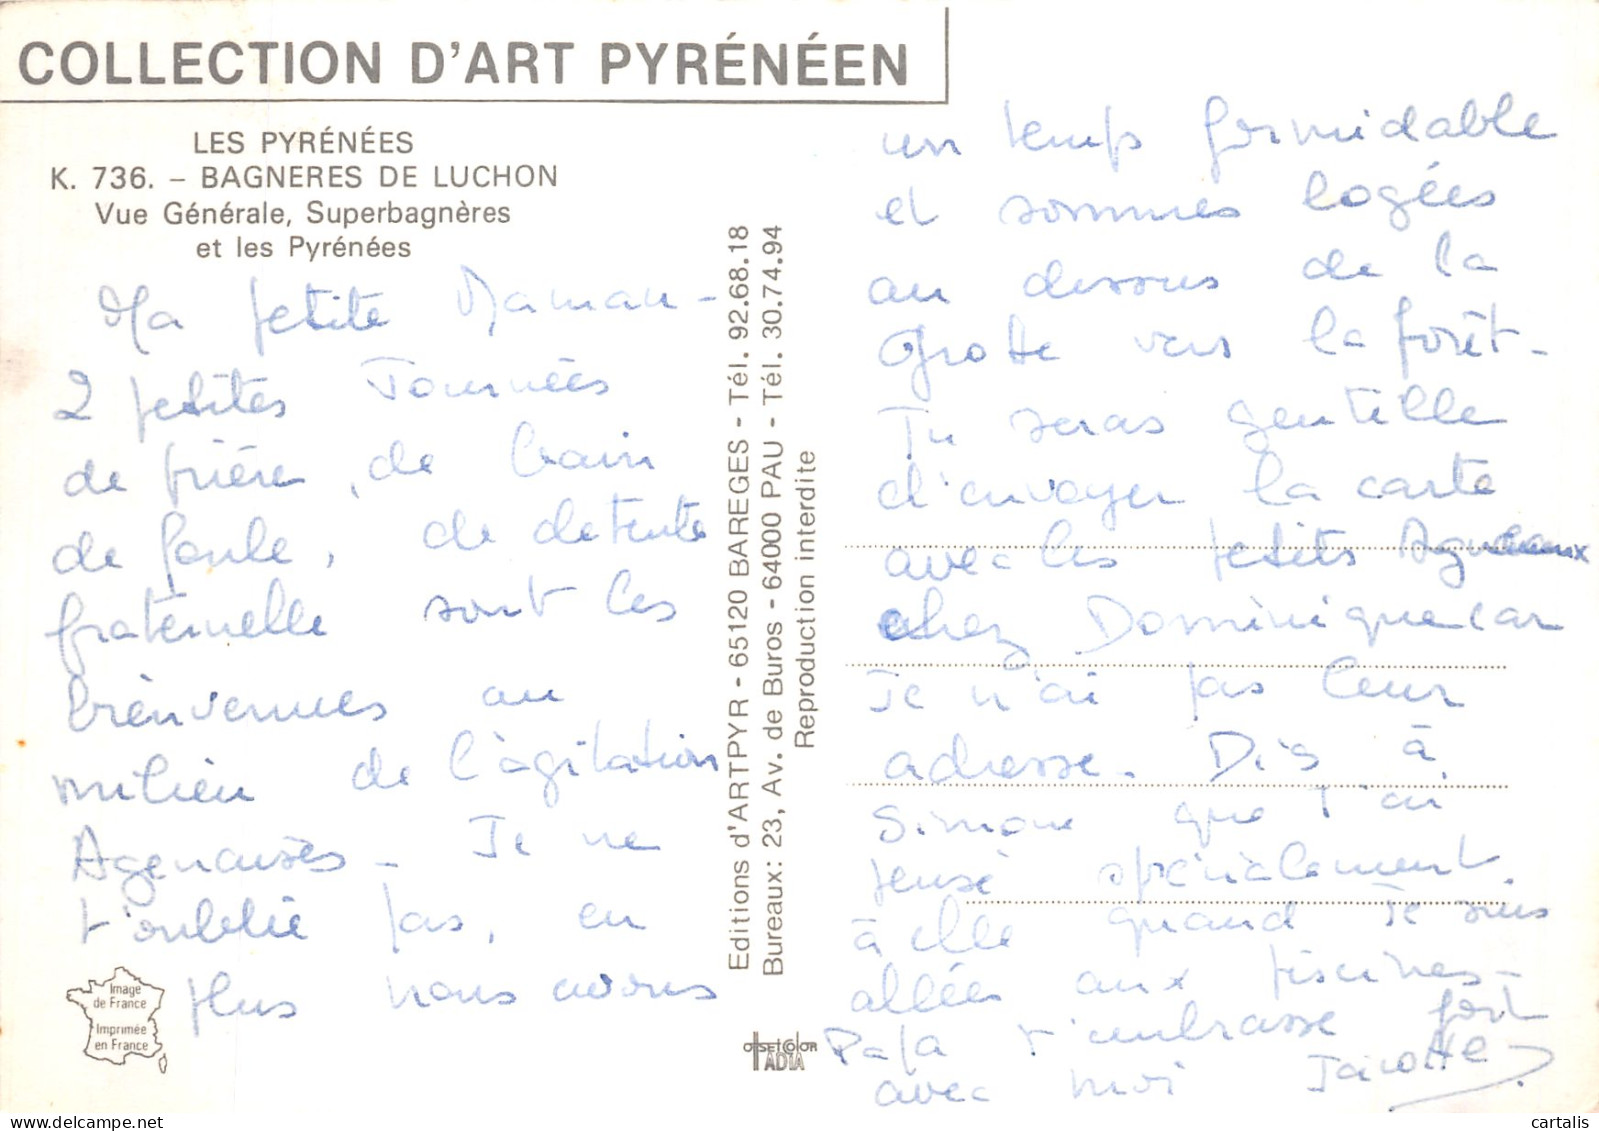 COLLECTION D'ART PYRÉNÉEN
LES PYRÉNÉES
K. 736. – BAGNERES DE LUCHON
Vue Générale, Superbagnères
et les Pyrénées
Ma petite Maman -
2 petites Journées
de prière, de bain
de foule, de détente
fraternelle sont les
bienvenues au
milieu de l'agitation
Agenaises - Je ne
t'oublie pas, en
plus nous avons
Image
de France
Imprimée
en France
Editions d'ARTPYR - 65120 BAREGES - Tél. 92.68.18
Bureaux : 23, Av. de Buros - 64000 PAU - Tél. 30.74.94
Reproduction interdite
OFFSET COLOR
ADIA
un temps formidable
et sommes logées
au dessus de la
Grotte vers la forêt -
Tu seras gentille
d'envoyer la carte
avec les petits Agneaux
chez Dominique car
Je n'ai pas leur
adresse. Dis à
Simone que J'ai
pensé spécialement
à elle quand Je suis
allées aux piscines -
Papa t'embrasse fort
avec moi Jacotte
cartalis